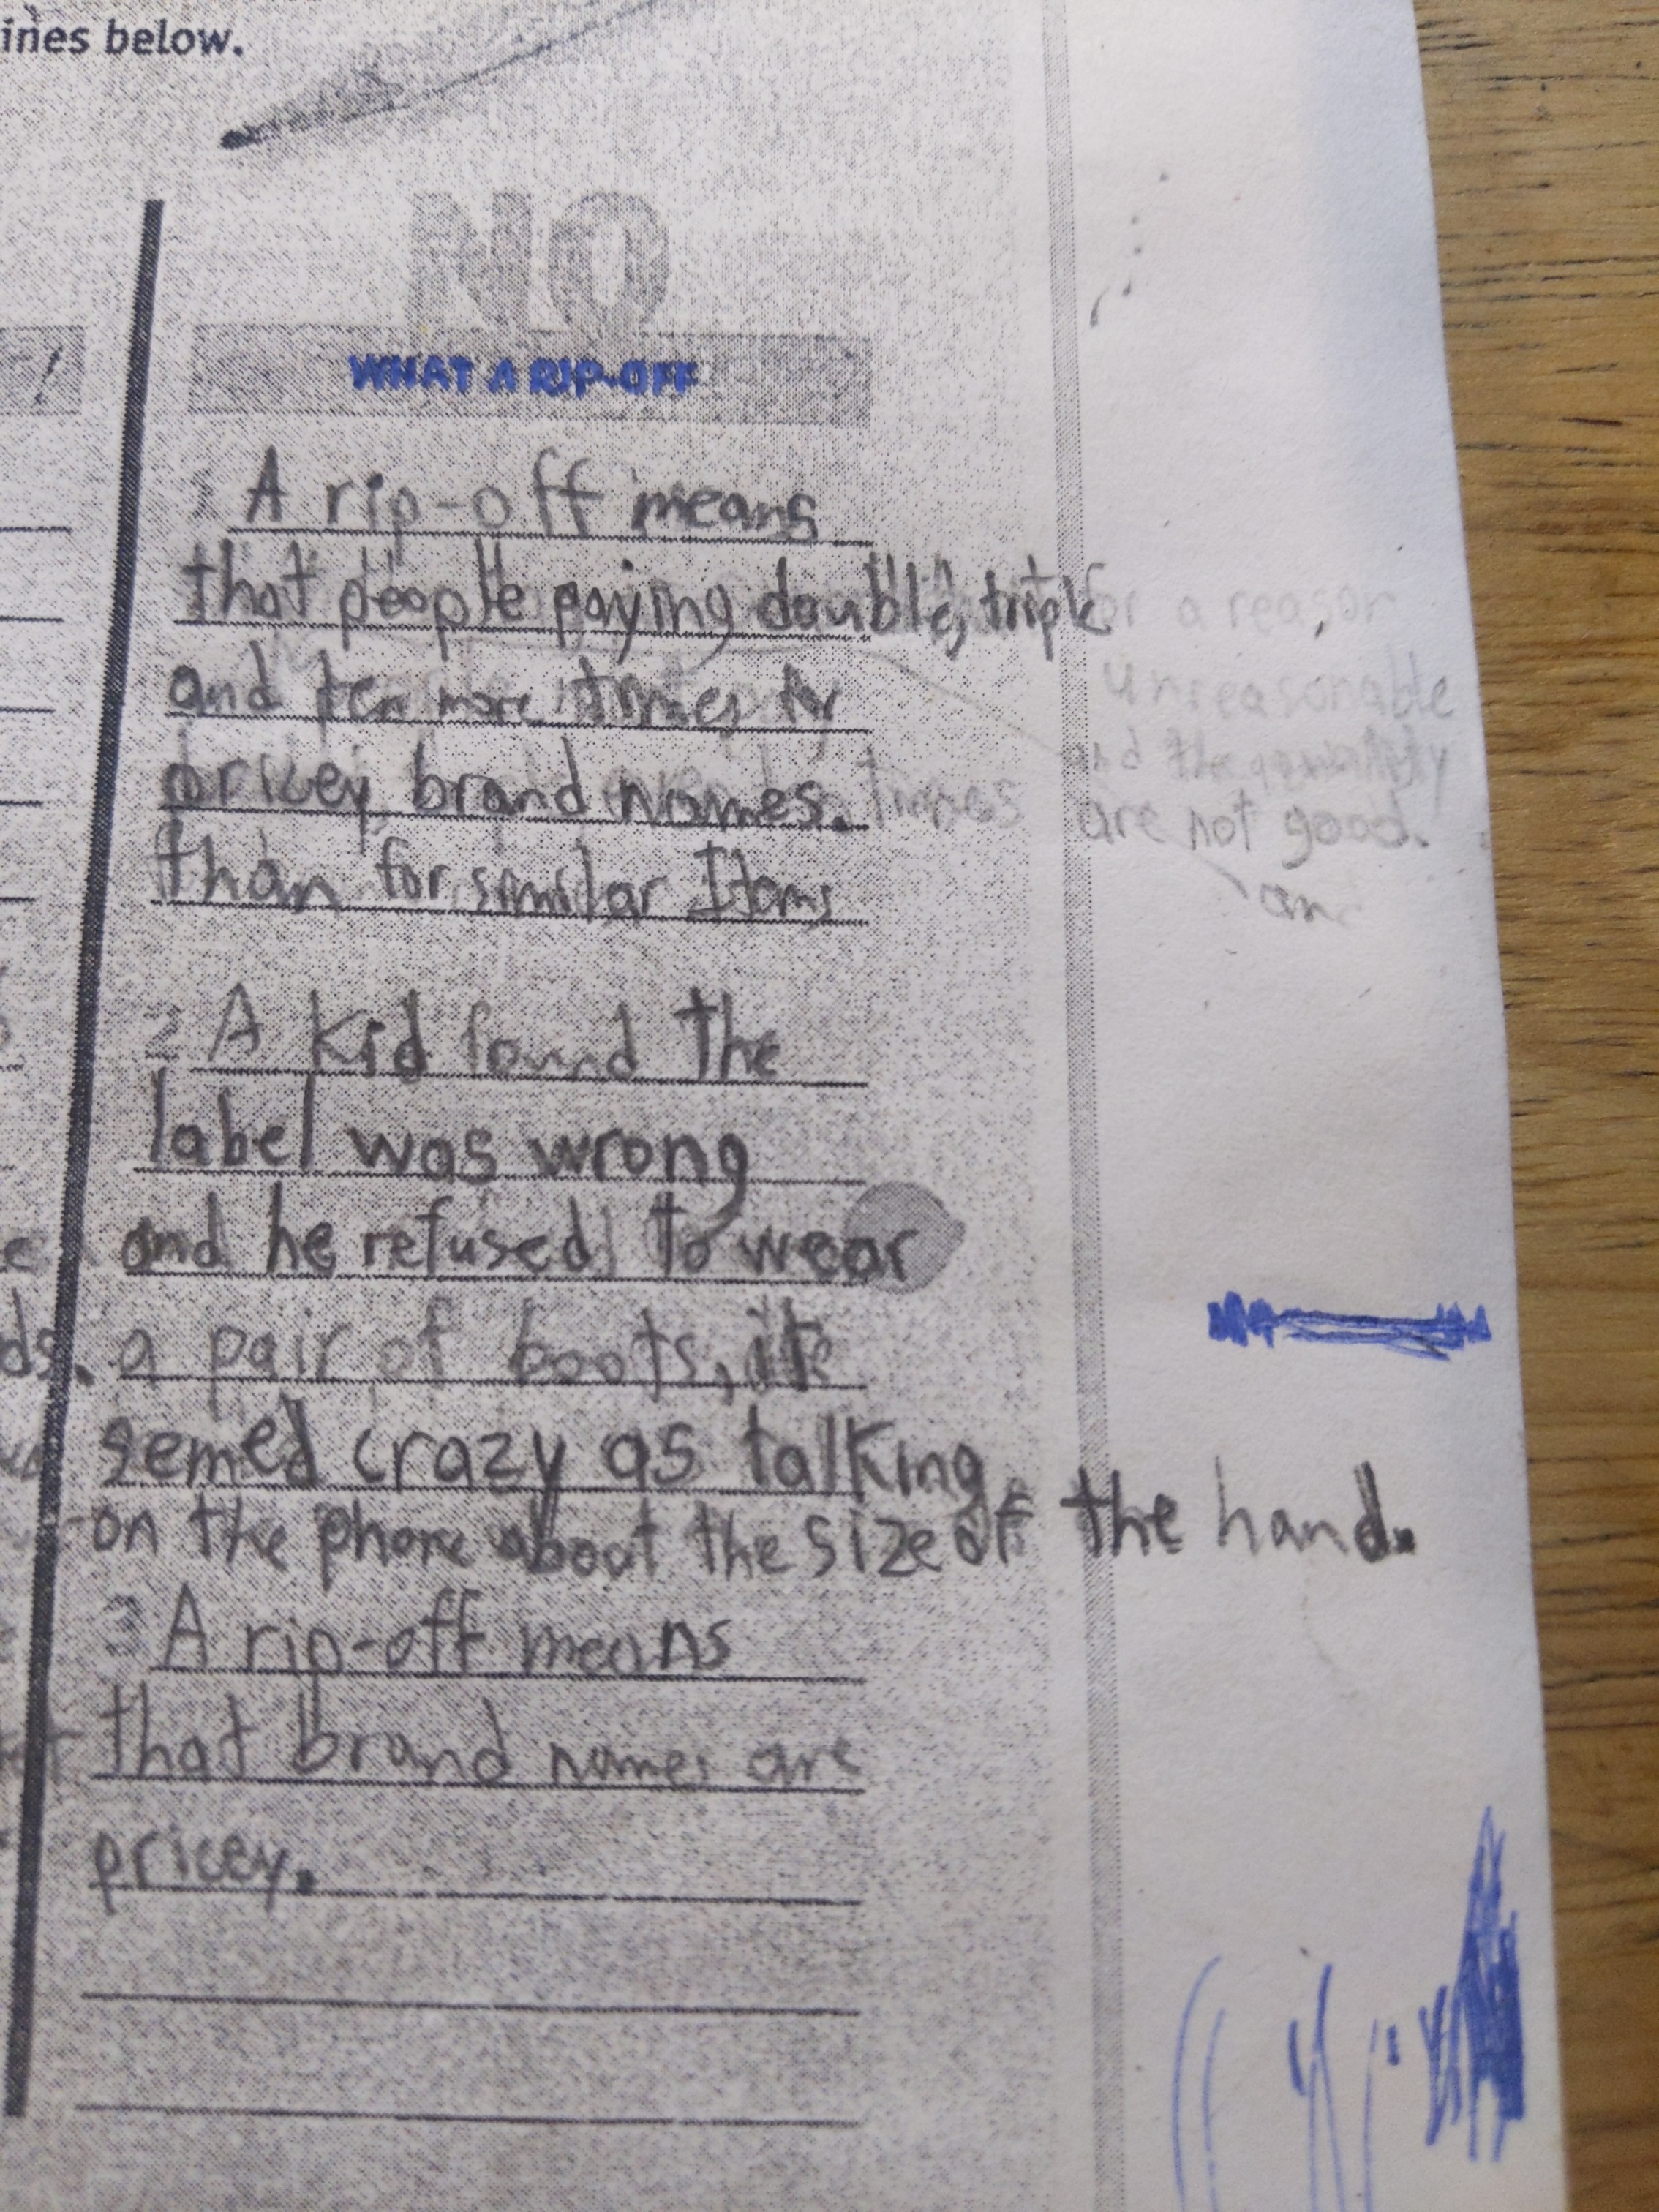 ines below.
NO
WHAT A RIP-OFF
1 A rip-off means
that people paying double, triple
and ten more times for
pricey brand names.
than for similar Items
or a reason
unreasonable
and the quantity
are not good.
an
2 A kid found the
label was wrong
and he refused to wear
a pair of boots, it
semed crazy as talking
on the phone about the size of the hand.
3 A rip-off means
that brand names are
pricey.